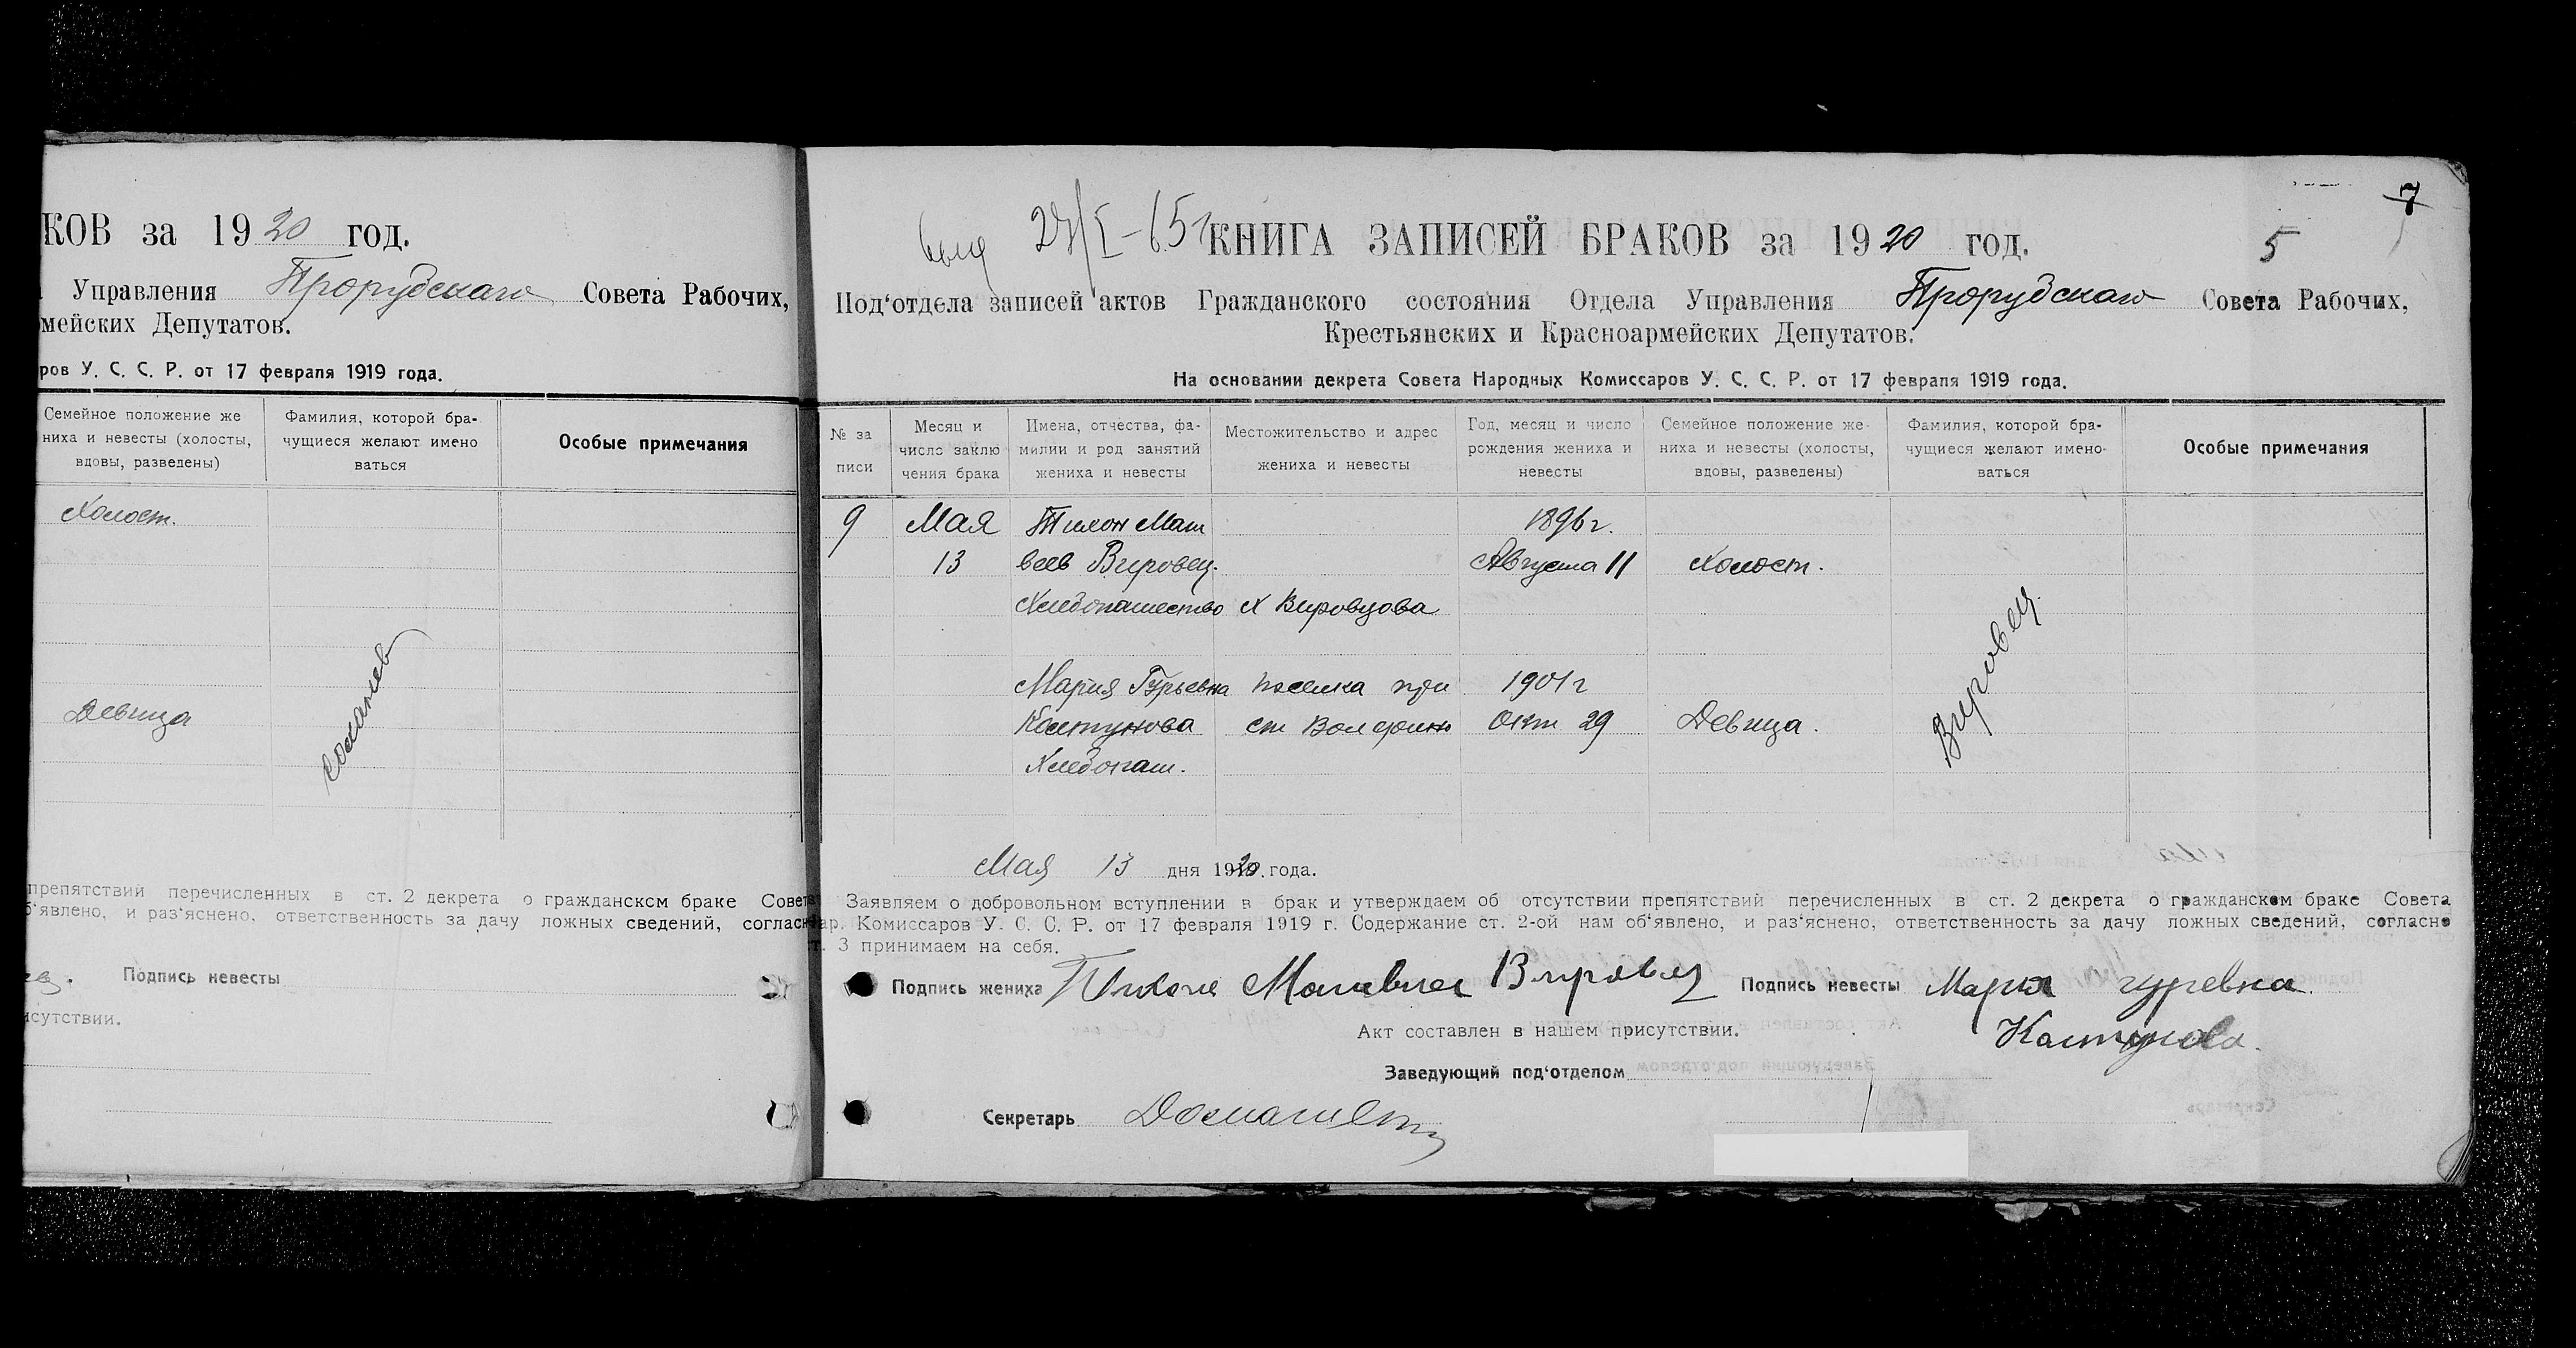 КОВ за 1920 год.
Управления Прорубскаго Совета Рабочих,
мейских Депутатов.
ров У. С. С. Р. от 17 февраля 1919 года.
Семейное положение же
ниха и невесты (холосты,
вдовы, разведены)
Фамилия, которой бра-
чущиеся желают имено
ваться
Особые примечания
Холост.
Девица
препятствий перечисленных в ст. 2 декрета о гражданском браке Совета
б'явлено, и раз'яснено, ответственность за дачу ложных сведений, соглас
Подпись невесты
исутствии.
7
5
27/I-65г
КНИГА ЗАПИСЕЙ БРАКОВ за 1920 год.
Под'отдела записей актов Гражданского состояния Отдела Управления Прорубскаго Совета Рабочих,
Крестьянских и Красноармейских Депутатов.
На основании декрета Совета Народных Комиссаров У. С. С. Р. от 17 февраля 1919 года.
№ за
писи
Месяц и
число заклю
чения брака
Имена, отчества, фа-
милии и род занятий
жениха и невесты
Местожительство и адрес
жениха и невесты
Год, месяц и число
рождения жениха и
невесты
Семейное положение же-
ниха и невесты (холосты,
вдовы, разведены)
Фамилия, которой бра-
чущиеся желают имено-
ваться
Особые примечания
9 Мая Тихон Мат 1896 г.
13 веев Вировец. Августа 11 Холост.
Хлебопашество х Вировцова
Вировец.
Мария Гурьевна поселка при 1901 г
Колтунова ст Волфино Окт 29 Девица.
Хлебопаш.
Мая 13 дня 1920. года.
Заявляем о добровольном вступлении в брак и утверждаем об отсутствии препятствий перечисленных в ст. 2 декрета о гражданском браке Совета
ар. Комиссаров У. С. С. Р. от 17 февраля 1919 г. Содержание ст. 2-ой нам об'явлено, и раз'яснено, ответственность за дачу ложных сведений, согласно
т. 3 принимаем на себя.
Подпись жениха Тихон Матвиев Вировец Подпись невесты Мария гуревна
Колтунова.
Акт составлен в нашем присутствии.
Заведующий под'отделом
Секретарь